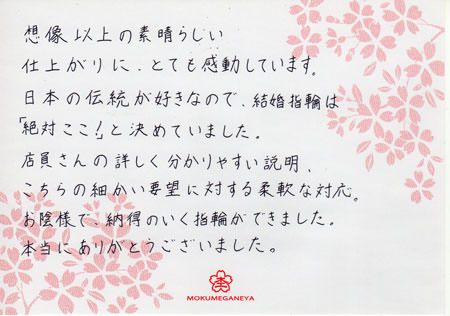 想像以上の素晴らしい
仕上がりに、とても感動しています。
日本の伝統が好きなので、結婚指輪は
「絶対ここ!」と決めていました。
店員さんの詳しく分かりやすい説明、
こちらの細かい要望に対する柔軟な対応。
お陰様で、納得のいく指輪ができました。
本当にありがとうございました。
MOKUMEGANEYA